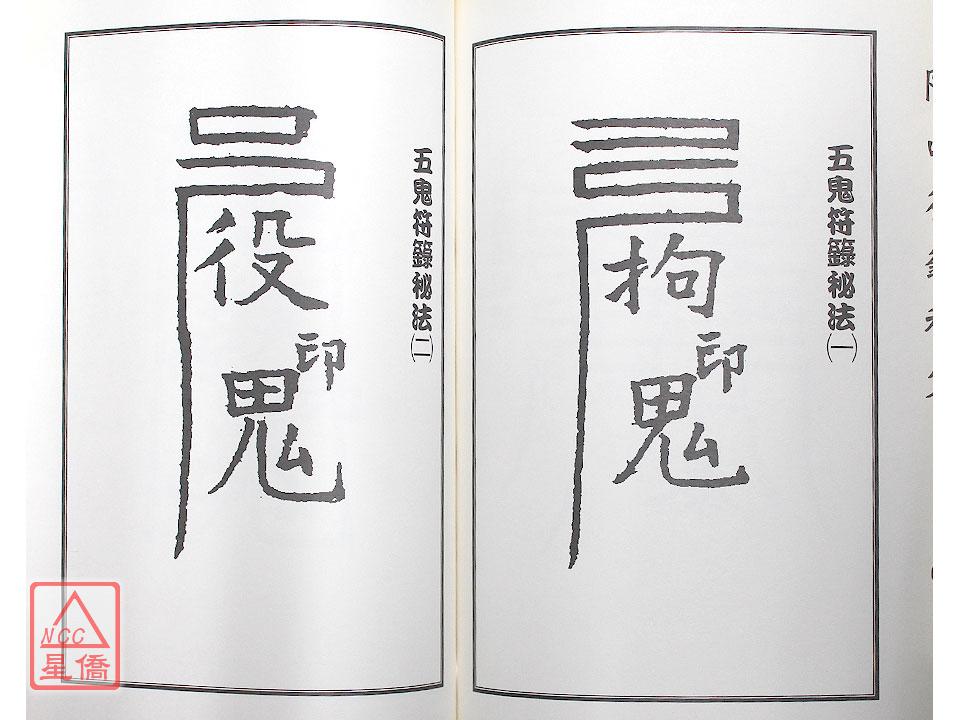 五鬼符籙秘法(一)
拘
印
鬼
五鬼符籙秘法(二)
役
印
鬼
NCC
星僑